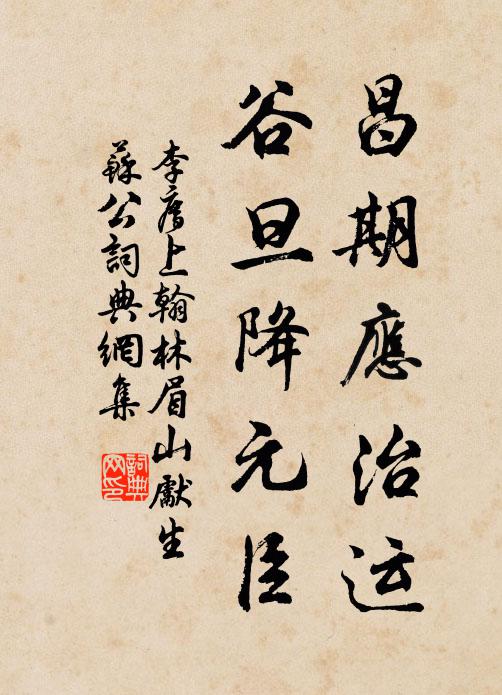 昌期應治运
谷旦降元臣
李廌上翰林眉山獻生
蘇公詞典網集
詞典
网印